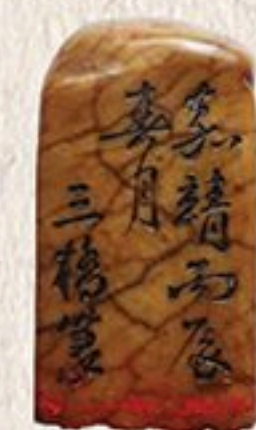 嘉靖丙辰
春月
三橋篆